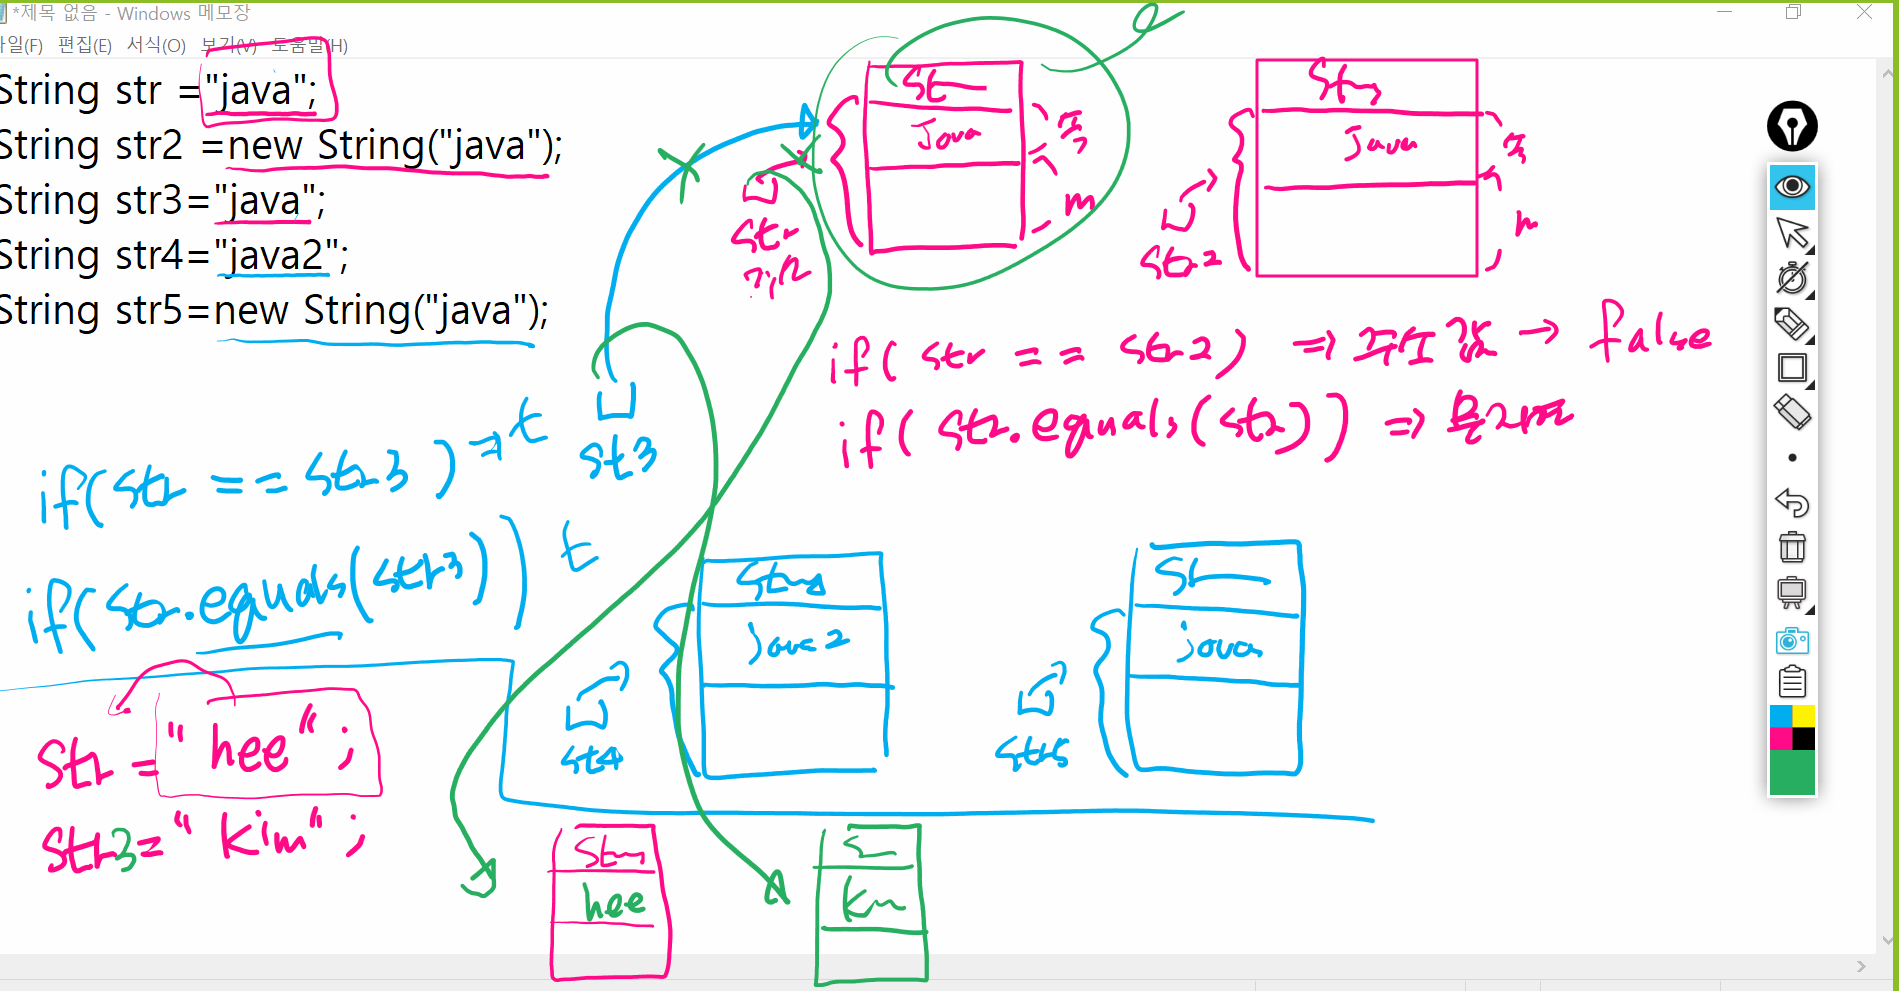 *제목 없음 - Windows 메모장
파일(F) 편집(E) 서식(O) 보기(V) 도움말(H)
String str ="java";
String str2 =new String("java");
String str3="java";
String str4="java2";
String str5=new String("java");
Java
m
str
Java
str2
if( str == str2) => 주소값 -> false
if( str.equals(str2)) => 문자열
if(str == str3) => t
str3
if(str.equals(str3)) t
java2
str4
java
str5
str = "hee";
str3= "kim";
hee